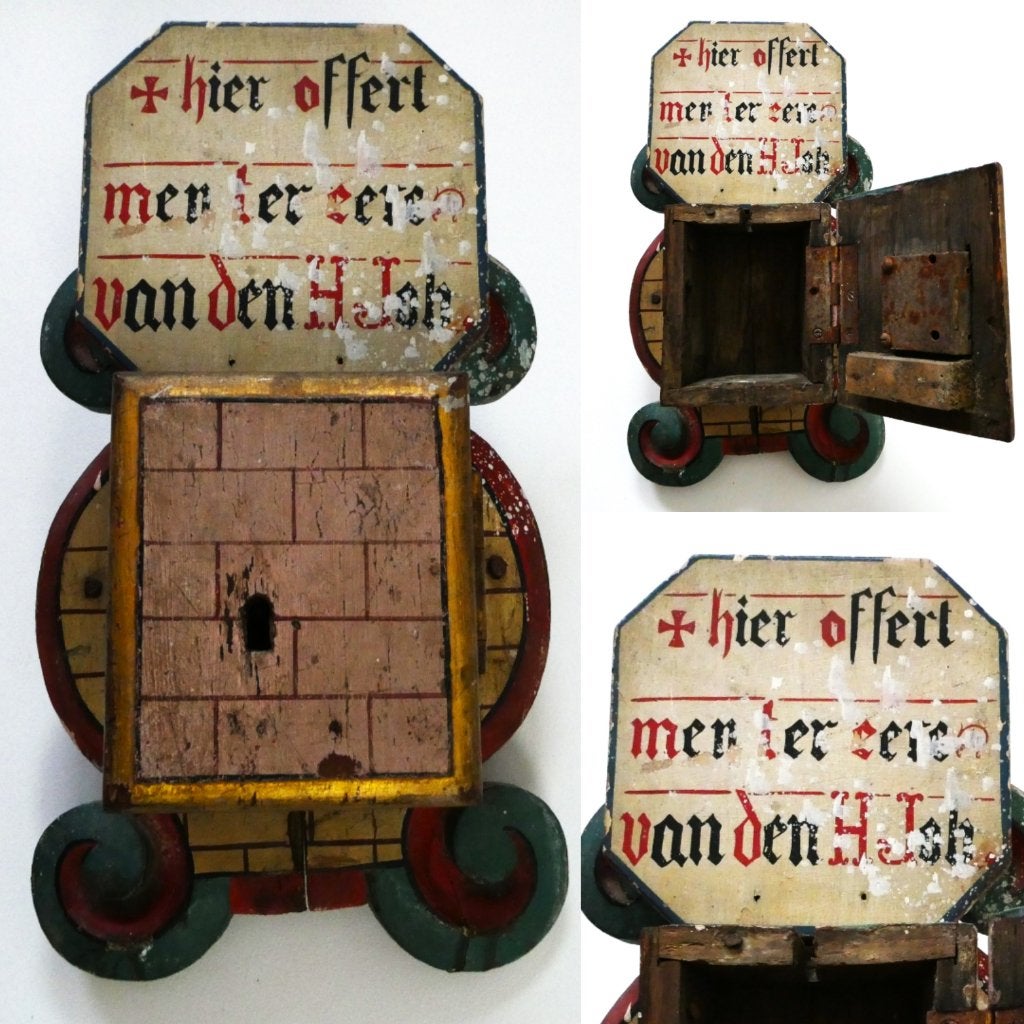 ✠ hier offert
men ter eere
van den H Jsh
✠ hier offert
men ter eere
van den H Jsh
✠ hier offert
men ter eere
van den H Jsh